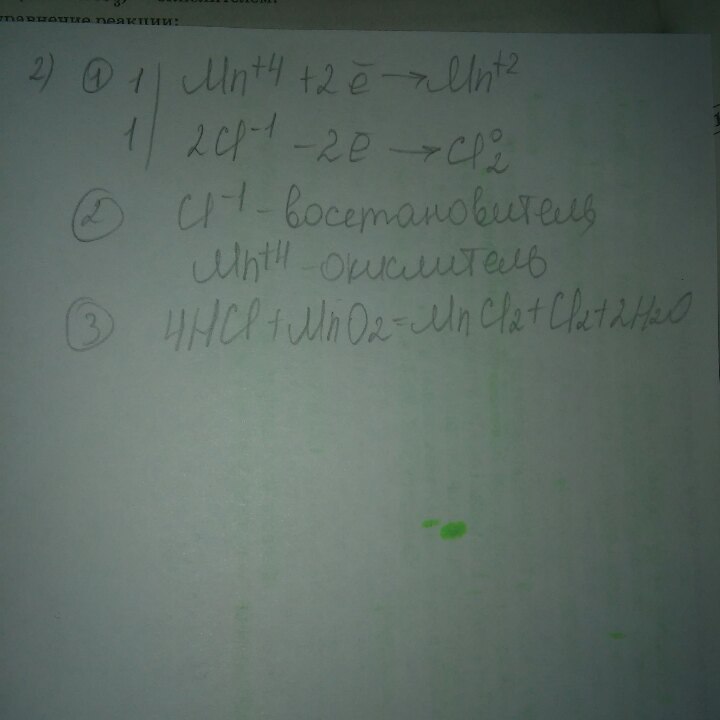 уравнение реакции:
2) ① 1 | Mn⁺⁴ + 2ē → Mn⁺²
1 | 2Cl⁻¹ – 2ē → Cl₂⁰
② Cl⁻¹ – восстановитель
Mn⁺⁴ – окислитель
③ 4HCl + MnO₂ = MnCl₂ + Cl₂ + 2H₂O